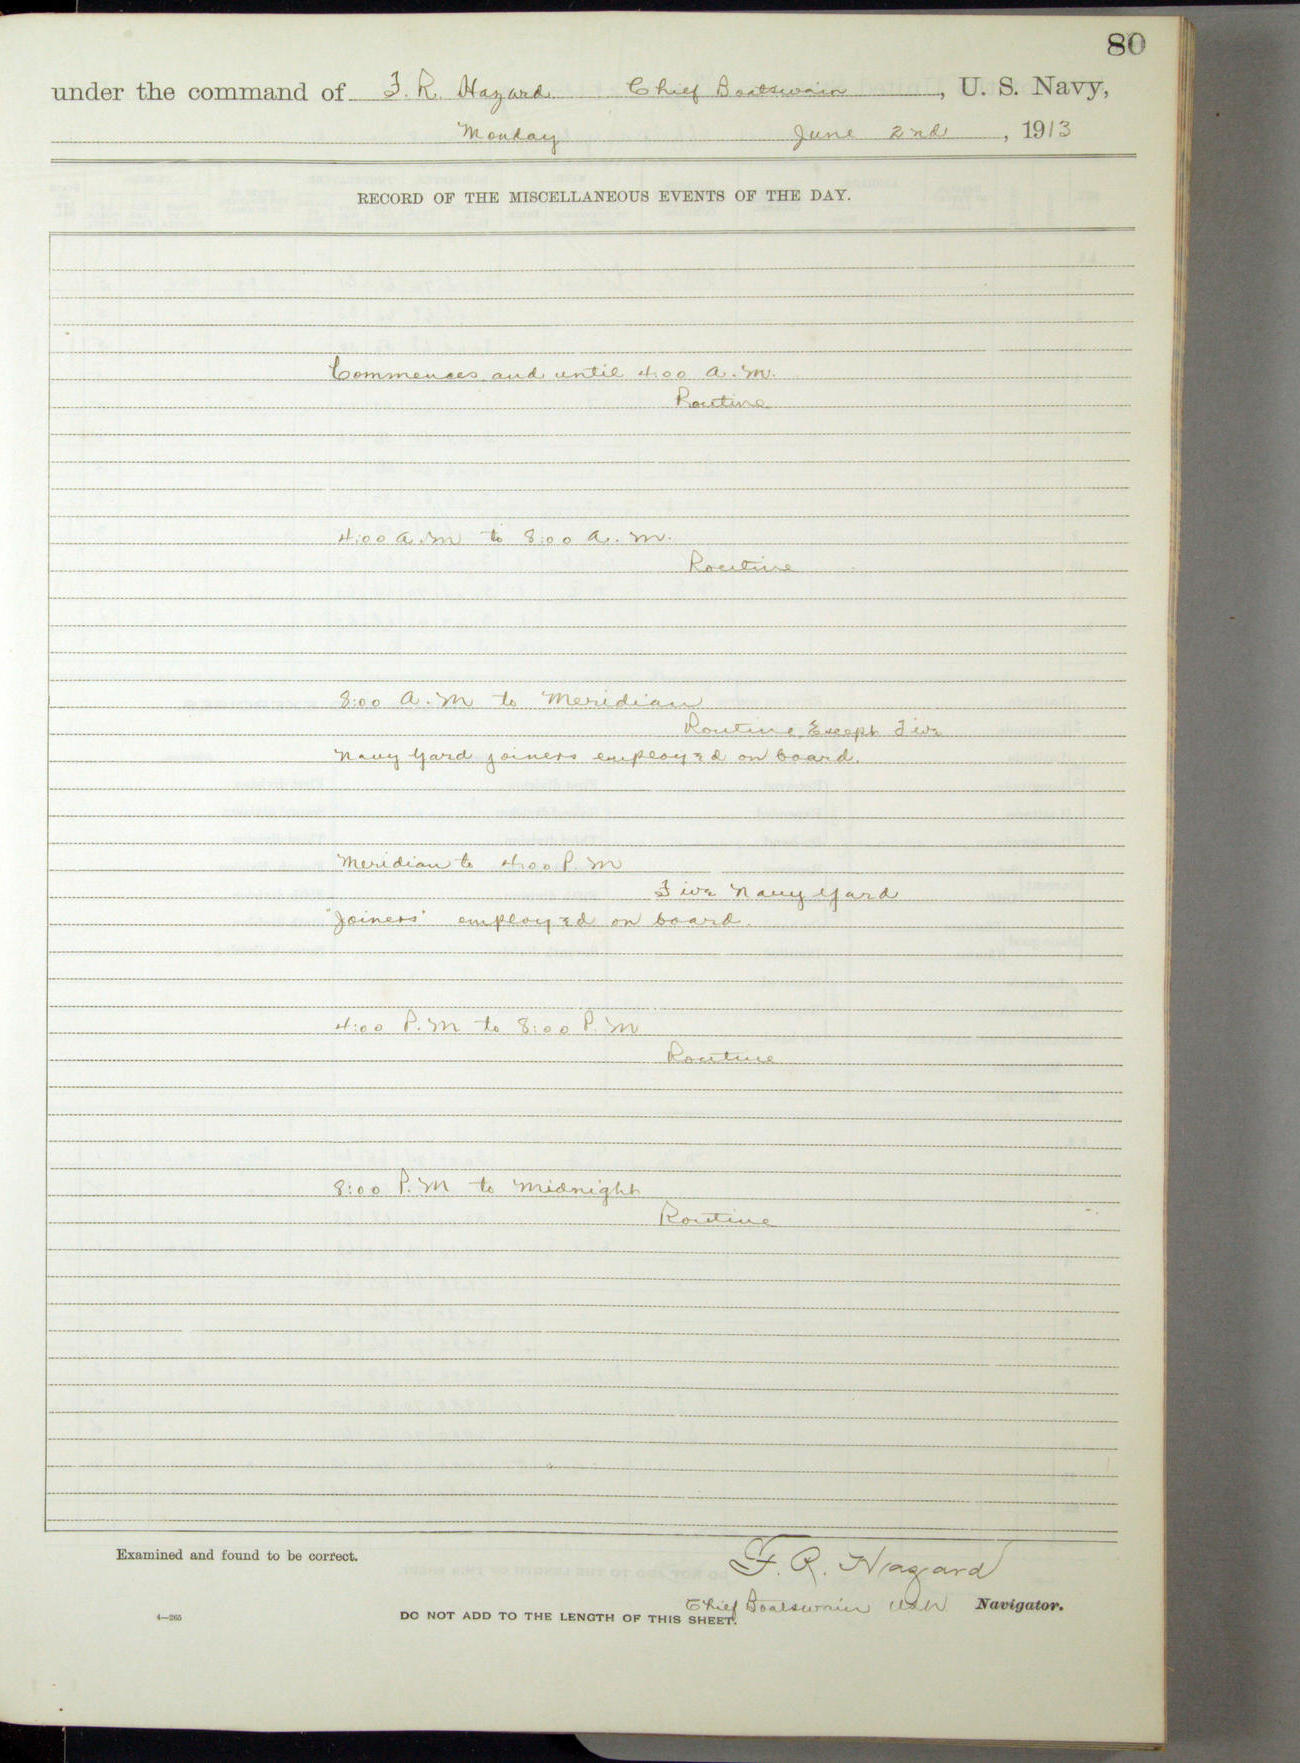 80
under the command of F. R. Hazard Chief Boatswain, U. S. Navy,
Monday June 2nd, 1913
RECORD OF THE MISCELLANEOUS EVENTS OF THE DAY.
Commences and until 4:00 A.M.
Routine
4:00 A.M to 8:00 A.M.
Routine
8:00 A.M to Meridian
Routine, Except Five
Navy Yard joiners employed on board.
Meridian to 4:00 P.M
Five Navy Yard
"Joiners" employed on board.
4:00 P.M to 8:00 P.M
Routine
8:00 P.M to Midnight
Routine
Examined and found to be correct.
F. R. Hazard
Chief Boatswain USN Navigator.
4—265
DO NOT ADD TO THE LENGTH OF THIS SHEET.